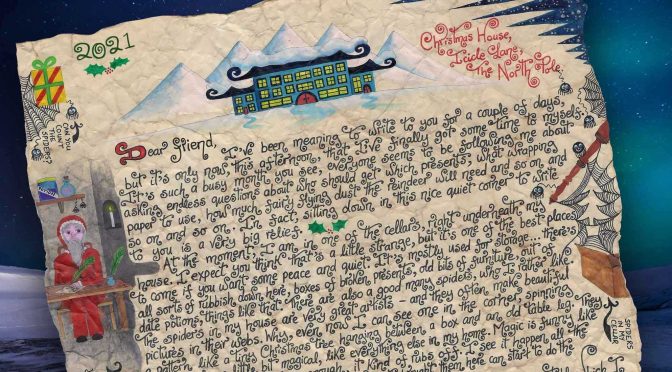 2021
Christmas House,
Icicle Lane,
The North Pole.
CAN YOU COUNT THE SPIDERS?
Dear Friend, I've been meaning to write to you for a couple of days,
but it's only now, this afternoon, that I've finally got some time to myself.
It's such a busy month, you see, everyone seems to be following me about
asking endless questions about who should get which presents, what wrapping
paper to use, how much fairy flying dust the reindeer will need and so on, and
so on, and so on. In fact, sitting down in this nice quiet corner to write
to you is a very big relief.
At the moment, I am in one of the cellars, right underneath my
house. I expect you think that's a little strange, but it's one of the best places
to come if you want some peace and quiet. It's mostly used for storage... there's
all sorts of rubbish down here, boxes of broken presents, old bits of furniture, out of
date potions, things like that. There are also a good many spiders, who I rather like.
The spiders in my house are very great artists - and they often make beautiful
pictures in their webs. Why, even now I can see one in the corner, spinning
a pattern like a tiny Christmas tree hanging between a box and an old table leg. They
little bit magical, like everything else in my home. Magic is funny like
it kind of rubs off. I see it happen all the
them here can start to do the
SPIDERS IN MY CELLAR